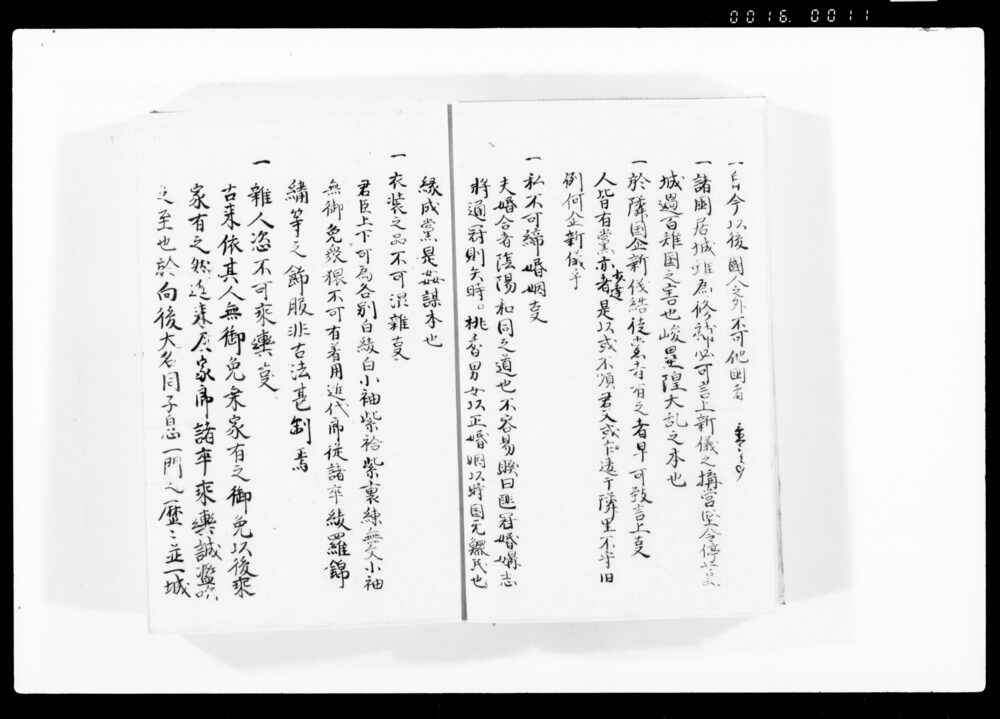 0016.0011
一自今以後国人之外不可他国者
一諸国居城雖為修補必可言上新儀之搆営堅令停止
城過百雉国之害也峻塁隍大乱之本也
一於隣国企新儀結徒党者有之者早可致言上事
人皆有党亦少達者是以或不順君父或乍違于隣里不守旧
例何企新儀乎
一私不可締婚姻事
夫婚合者陰陽和同之道也不容易睽曰匪冠婚媾志
将通冠則失時。桃夭男女以正婚姻以時国无鰥民也
縁成党是姦謀本也
一衣装之品不可混雑事
君臣上下可為各別白綾白小袖紫袷紫裏練無文小袖
無御免衆猥不可有着用近代郎従諸卒綾羅錦
繍等之飾服非古法甚制焉
一雑人恣不可乗輿事
古来依其人無御免乗家有之御免以後乗
家有之然近来及家郎諸卒乗輿誠濫吹
之至也於向後大名同子息一門之歴々並一城